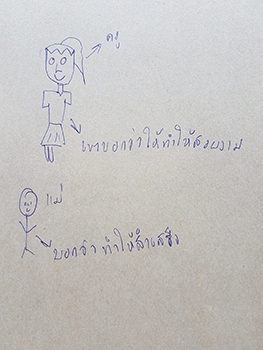 ครู
เขาบอกว่าให้ทำให้สวยงาม
แม่
บอกว่า ทำให้สำเสร็จ